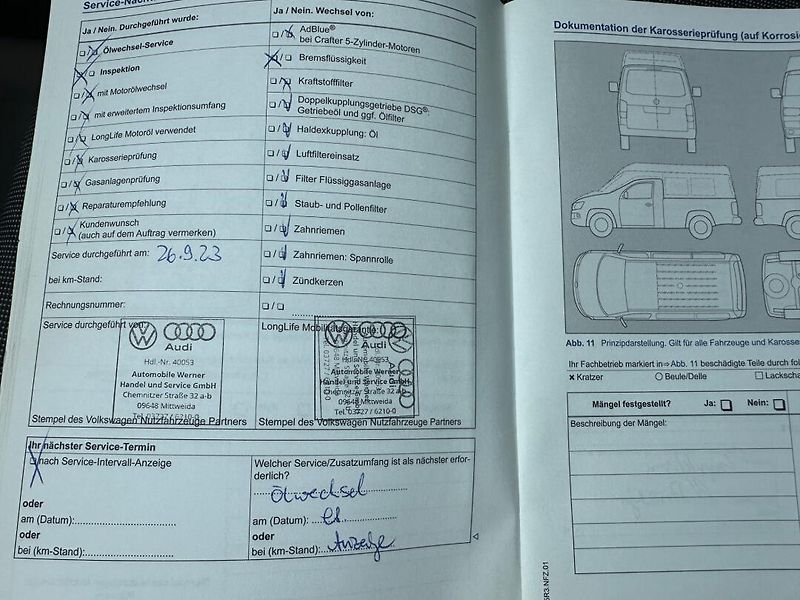 Service-Nach
Ja / Nein. Durchgeführt wurde:
Ölwechsel-Service
Inspektion
mit Motorölwechsel
mit erweitertem Inspektionsumfang
LongLife Motoröl verwendet
Karosserieprüfung
Gasanlagenprüfung
Reparaturempfehlung
Kundenwunsch
(auch auf dem Auftrag vermerken)
Service durchgeführt am: 26.9.23
bei km-Stand:
Rechnungsnummer:
Service durchgeführt von:
Audi
Hdl.-Nr. 40053
Automobile Werner
Handel und Service GmbH
Chemnitzer Straße 32 a-b
09648 Mittweida
Tel. 03727 / 6210-0
Stempel des Volkswagen Nutzfahrzeuge Partners
Ja / Nein. Wechsel von:
AdBlue®
bei Crafter 5-Zylinder-Motoren
Bremsflüssigkeit
Kraftstofffilter
Doppelkupplungsgetriebe DSG®:
Getriebeöl und ggf. Ölfilter
Haldexkupplung: Öl
Luftfiltereinsatz
Filter Flüssiggasanlage
Staub- und Pollenfilter
Zahnriemen
Zahnriemen: Spannrolle
Zündkerzen
LongLife Mobilitätsgarantie:
Audi
Hdl.-Nr. 40053
Automobile Werner
Handel und Service GmbH
Chemnitzer Straße 32 a-b
09648 Mittweida
Tel. 03727 / 6210-0
Stempel des Volkswagen Nutzfahrzeuge Partners
Ihr nächster Service-Termin
nach Service-Intervall-Anzeige
oder
am (Datum):
oder
bei (km-Stand):
Welcher Service/Zusatzumfang ist als nächster erfor-
derlich?
Ölwechsel
am (Datum):
oder
bei (km-Stand): Anzeige
Dokumentation der Karosserieprüfung (auf Korrosi
Abb. 11 Prinzipdarstellung. Gilt für alle Fahrzeuge und Karosse
Ihr Fachbetrieb markiert in ⇒ Abb. 11 beschädigte Teile durch fol
x Kratzer
Beule/Delle
Lackscha
Mängel festgestellt? Ja: Nein:
Beschreibung der Mängel:
5R3.NFZ.01